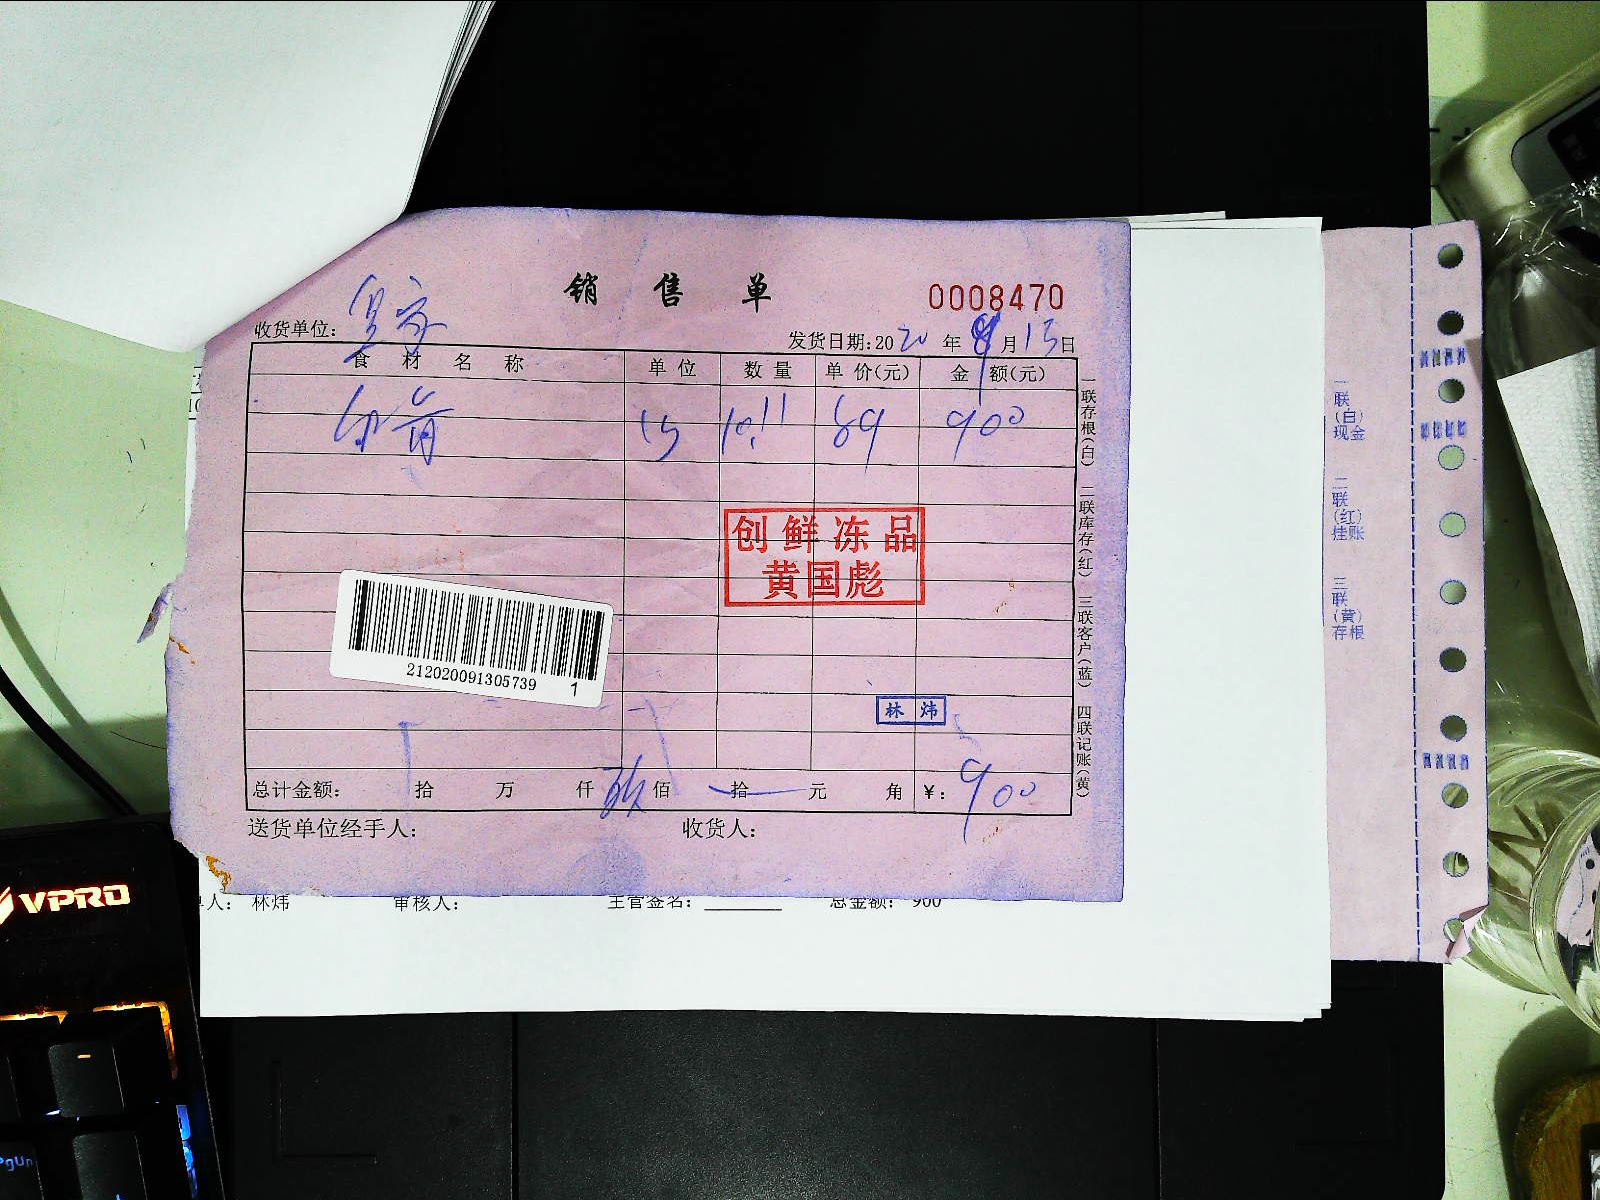 销售单
0008470
收货单位: 皇家
发货日期:2020年9月13日
食材名称 单位 数量 单价(元) 金额(元)
10.11 89 900
创鲜冻品
黄国彪
212020091305739 1
林炜
总计金额: 拾 万 仟 玖佰 拾 元 角 ¥: 900
送货单位经手人: 收货人:
一联存根(白) 二联库存(红) 三联客户(蓝) 四联记账(黄)
人: 林炜 审核人: 主管签名: 总金额: 900
一联(白)现金
二联(红)挂账
三联(黄)存根
VPRO
PgUp